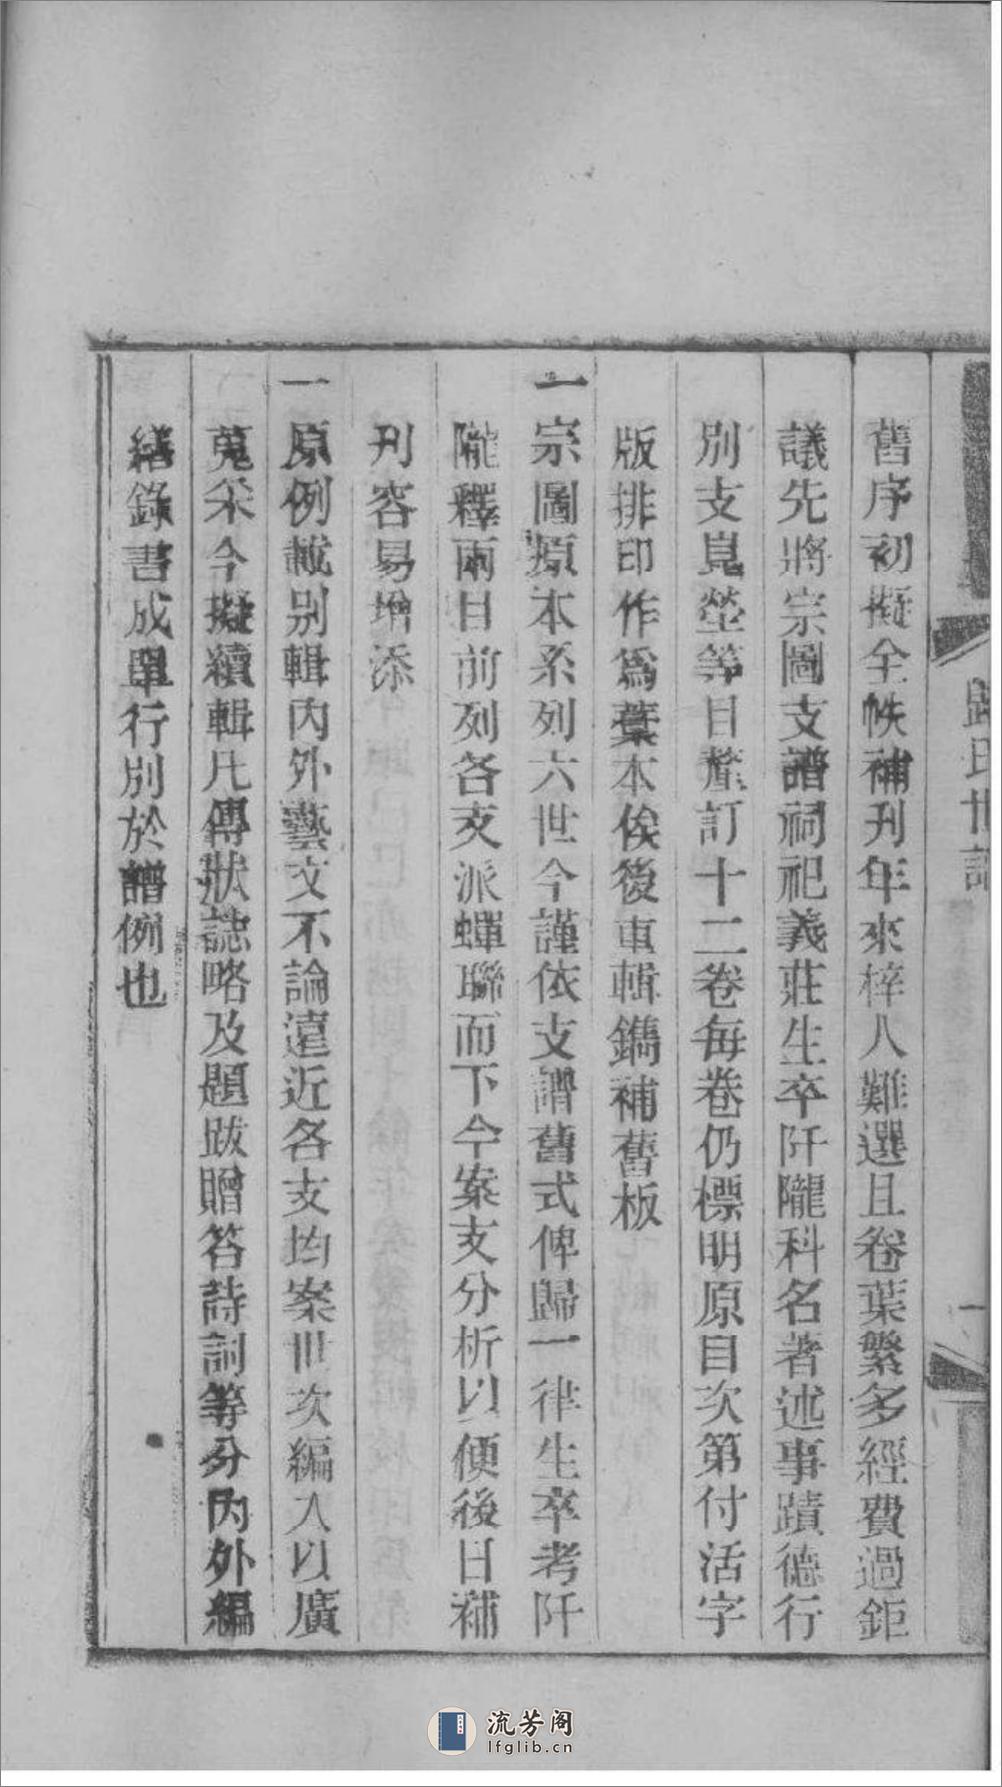 歸氏世譜
舊序初擬全帙補刊年來梓人難選且卷葉繁多經費過鉅
議先將宗圖支譜祠祀義莊生卒阡隴科名著述事蹟德行
別支崑塋等目釐訂十二卷每卷仍標明原目次第付活字
版排印作爲葉本俟後車輯鐫補舊板
一宗圖原本系列六世今謹依支譜舊式俾歸一律生卒考阡
隴釋兩目前列各支派蟬聯而下今案支分析以便後日補
刊容易增添
一原例載别輯内外藝文不論遠近各支均案世次編入以廣
蒐采今擬續輯凡傳狀誌略及題跋贈答詩詞等分内外編
繕錄書成單行別於譜例也
流芳阁
lfglib.cn